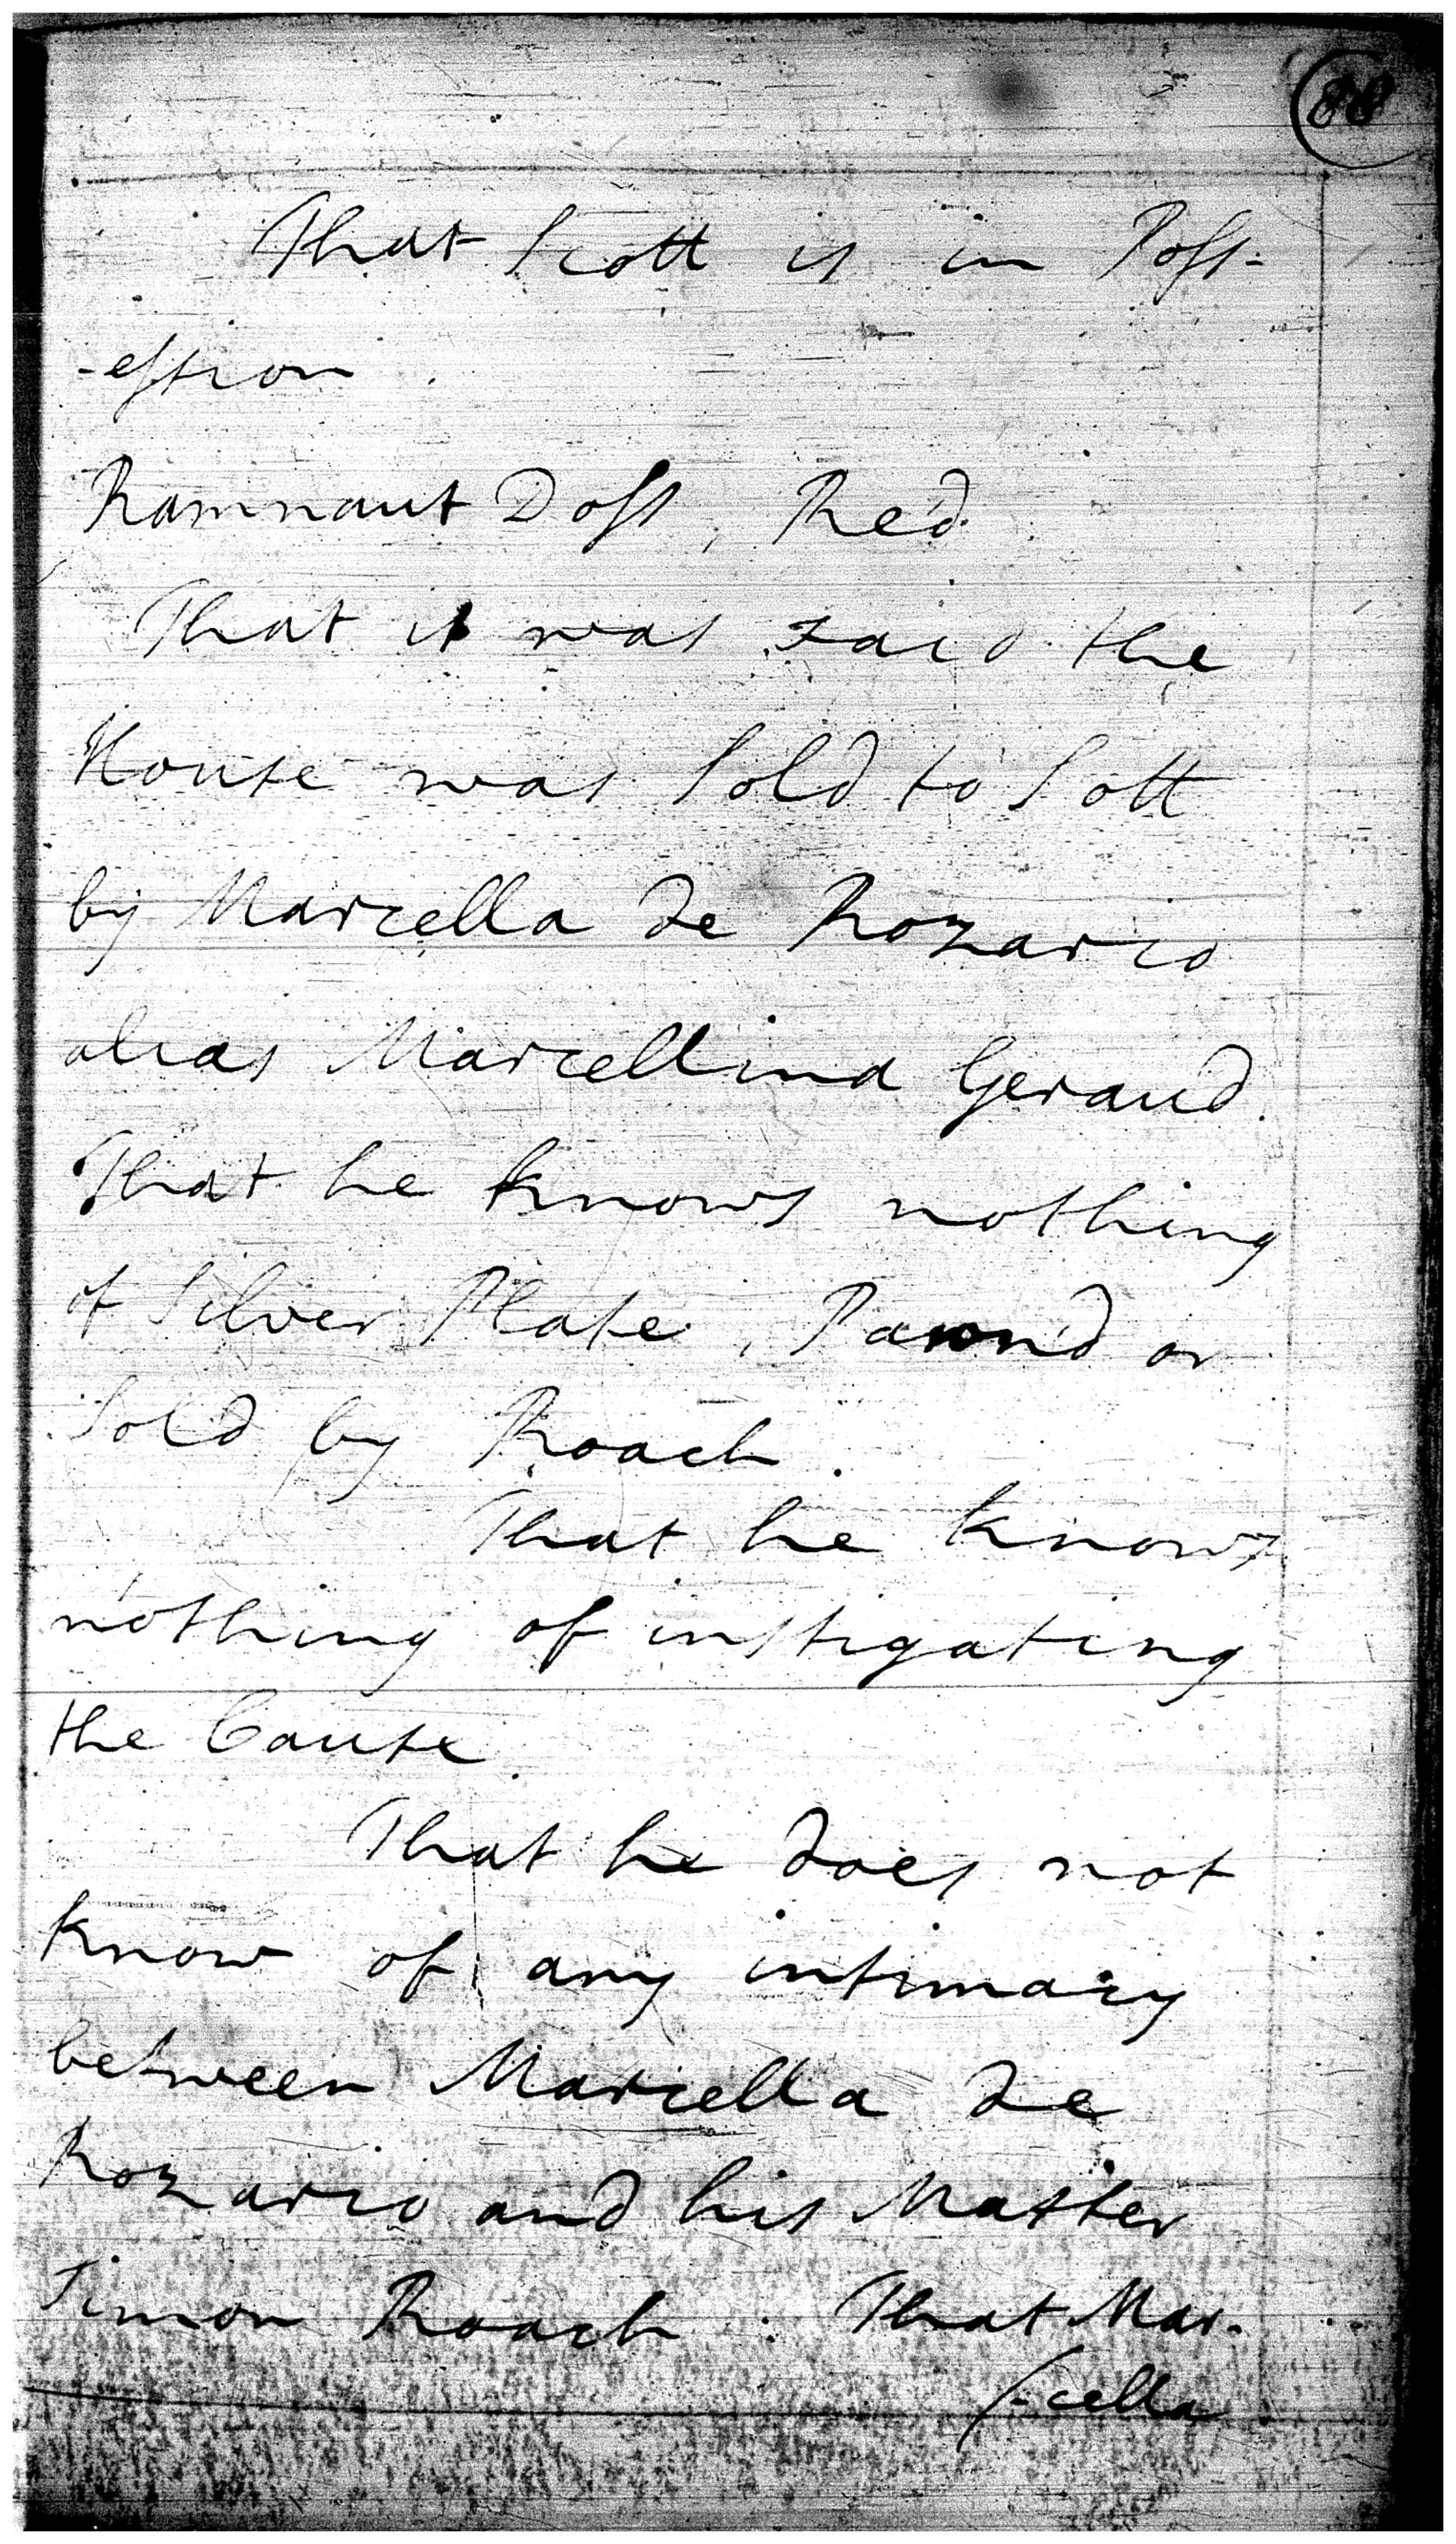 88
That Scott is in Poss-
-ession.
Ramnaut Doss, Re'd.
That it was said the
House was Sold to Sott
by Marcella de Rozario
alias Marcellina Geraud.
That he knows nothing
of Silver Plate, Pawn'd or
Sold by Roach.
That he knows
nothing of instigating
the Cause.
That he does not
know of any intimacy
between Marcella de
Rozario and his Master
Simon Roach. That Mar-
-cella